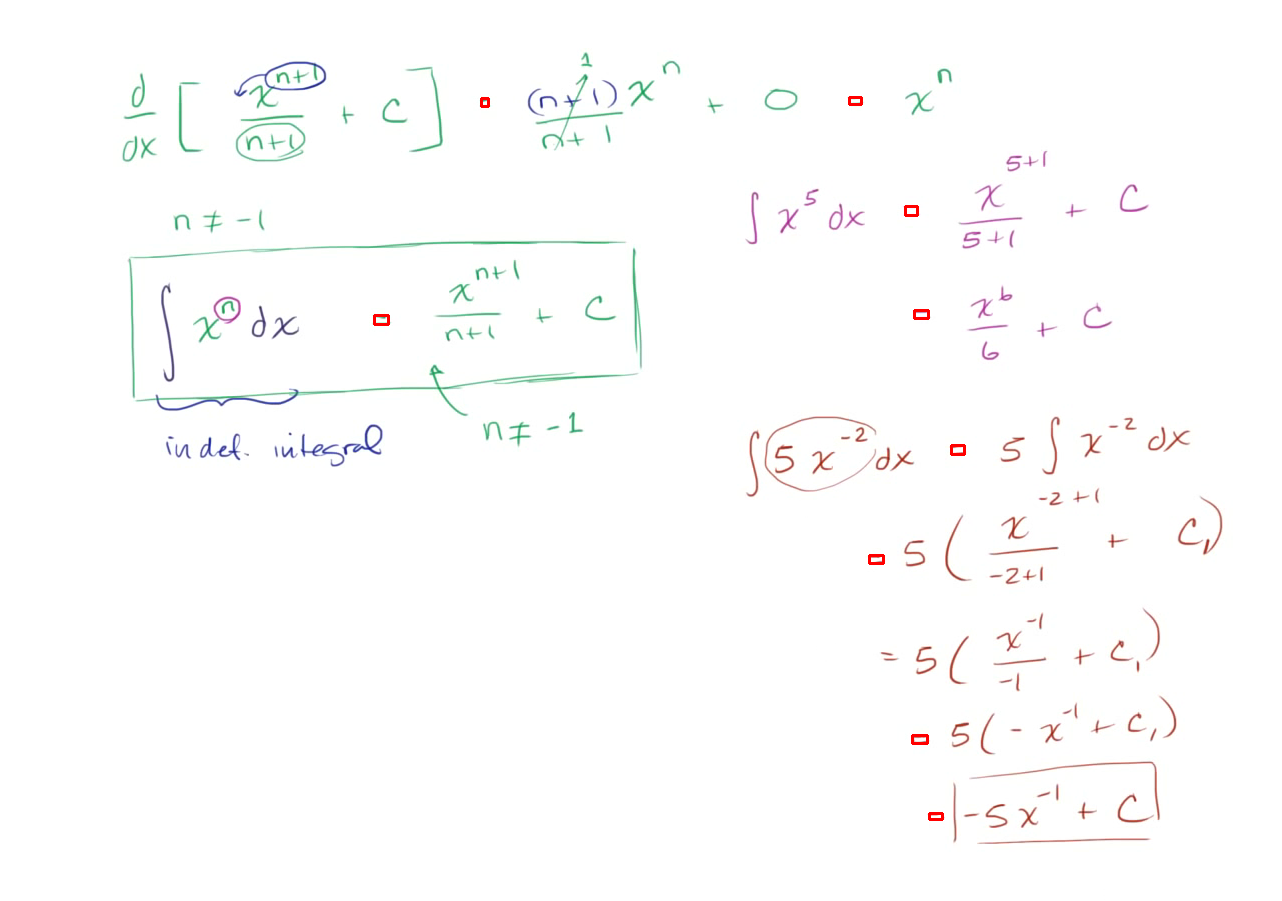 d/dx [ x^(n+1)/(n+1) + C ] (n+1)x^n/(n+1) 1 + 0 x^n
n ≠ -1
∫ x^n dx x^(n+1)/(n+1) + C
n ≠ -1
indef. integral
∫ x^5 dx x^(5+1)/(5+1) + C
x^6/6 + C
∫ 5x^(-2) dx 5 ∫ x^(-2) dx
5 ( x^(-2+1)/(-2+1) + C₁ )
= 5 ( x^(-1)/(-1) + C₁ )
5 ( -x^(-1) + C₁ )
-5x^(-1) + C